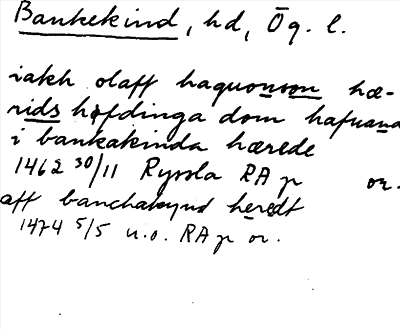 Bankekind, hd, Ög. l.
iakh olaff haquonson hæ-
rids høfdinga dom hafuand
i bankakinda hærede
1462 30/11 Ryssla RA p or.
aff banchakynd heredt
1474 5/5 u.o. RA p or.